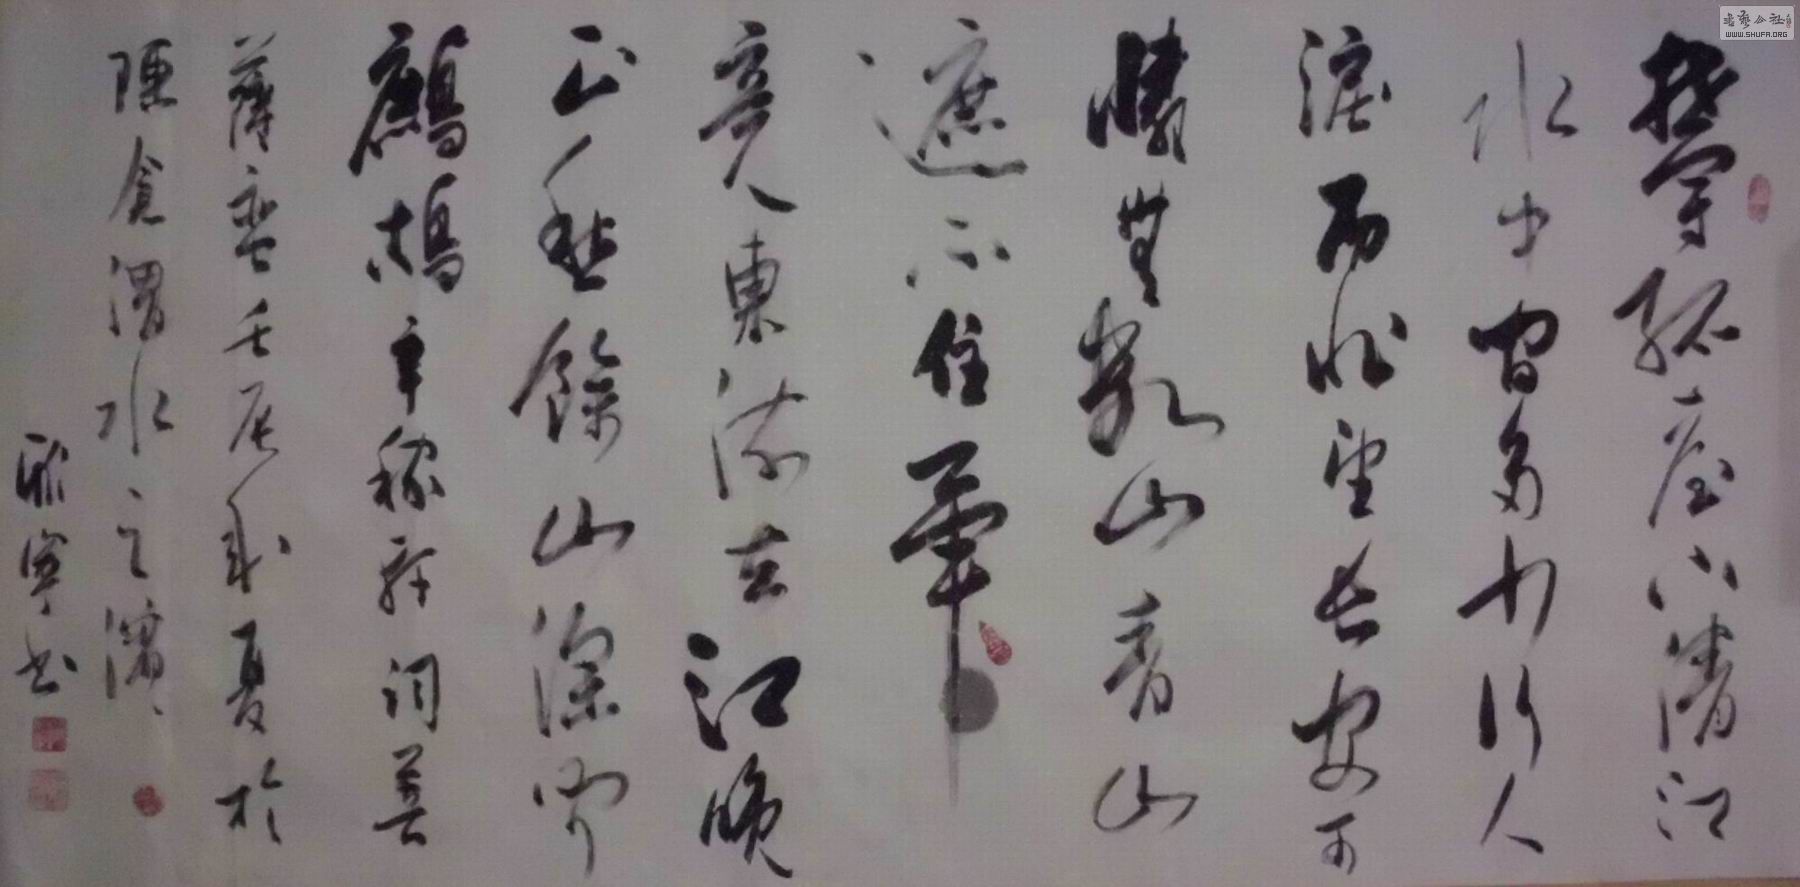 欝孤臺下清江
水中間多少行人
淚西北望長安可
憐無數山青山
遮不住畢
竟東流去江晚
正愁餘山深聞
鷓鴣辛稼軒詞菩
薩蠻壬辰年夏於
陋倉渭水之濱
寧書
書藝公社
WWW.SHUFA.ORG